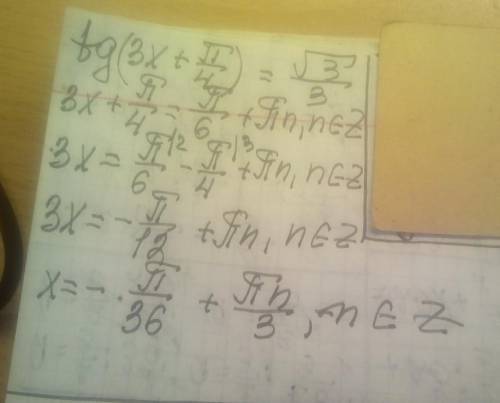 tg(3x + π/4) = √3/3
3x + π/4 = π/6 + πn, n∈Z
3x = π/6 |2 - π/4 |3 + πn, n∈Z
3x = - π/12 + πn, n∈Z
x = - π/36 + πn/3, n∈Z